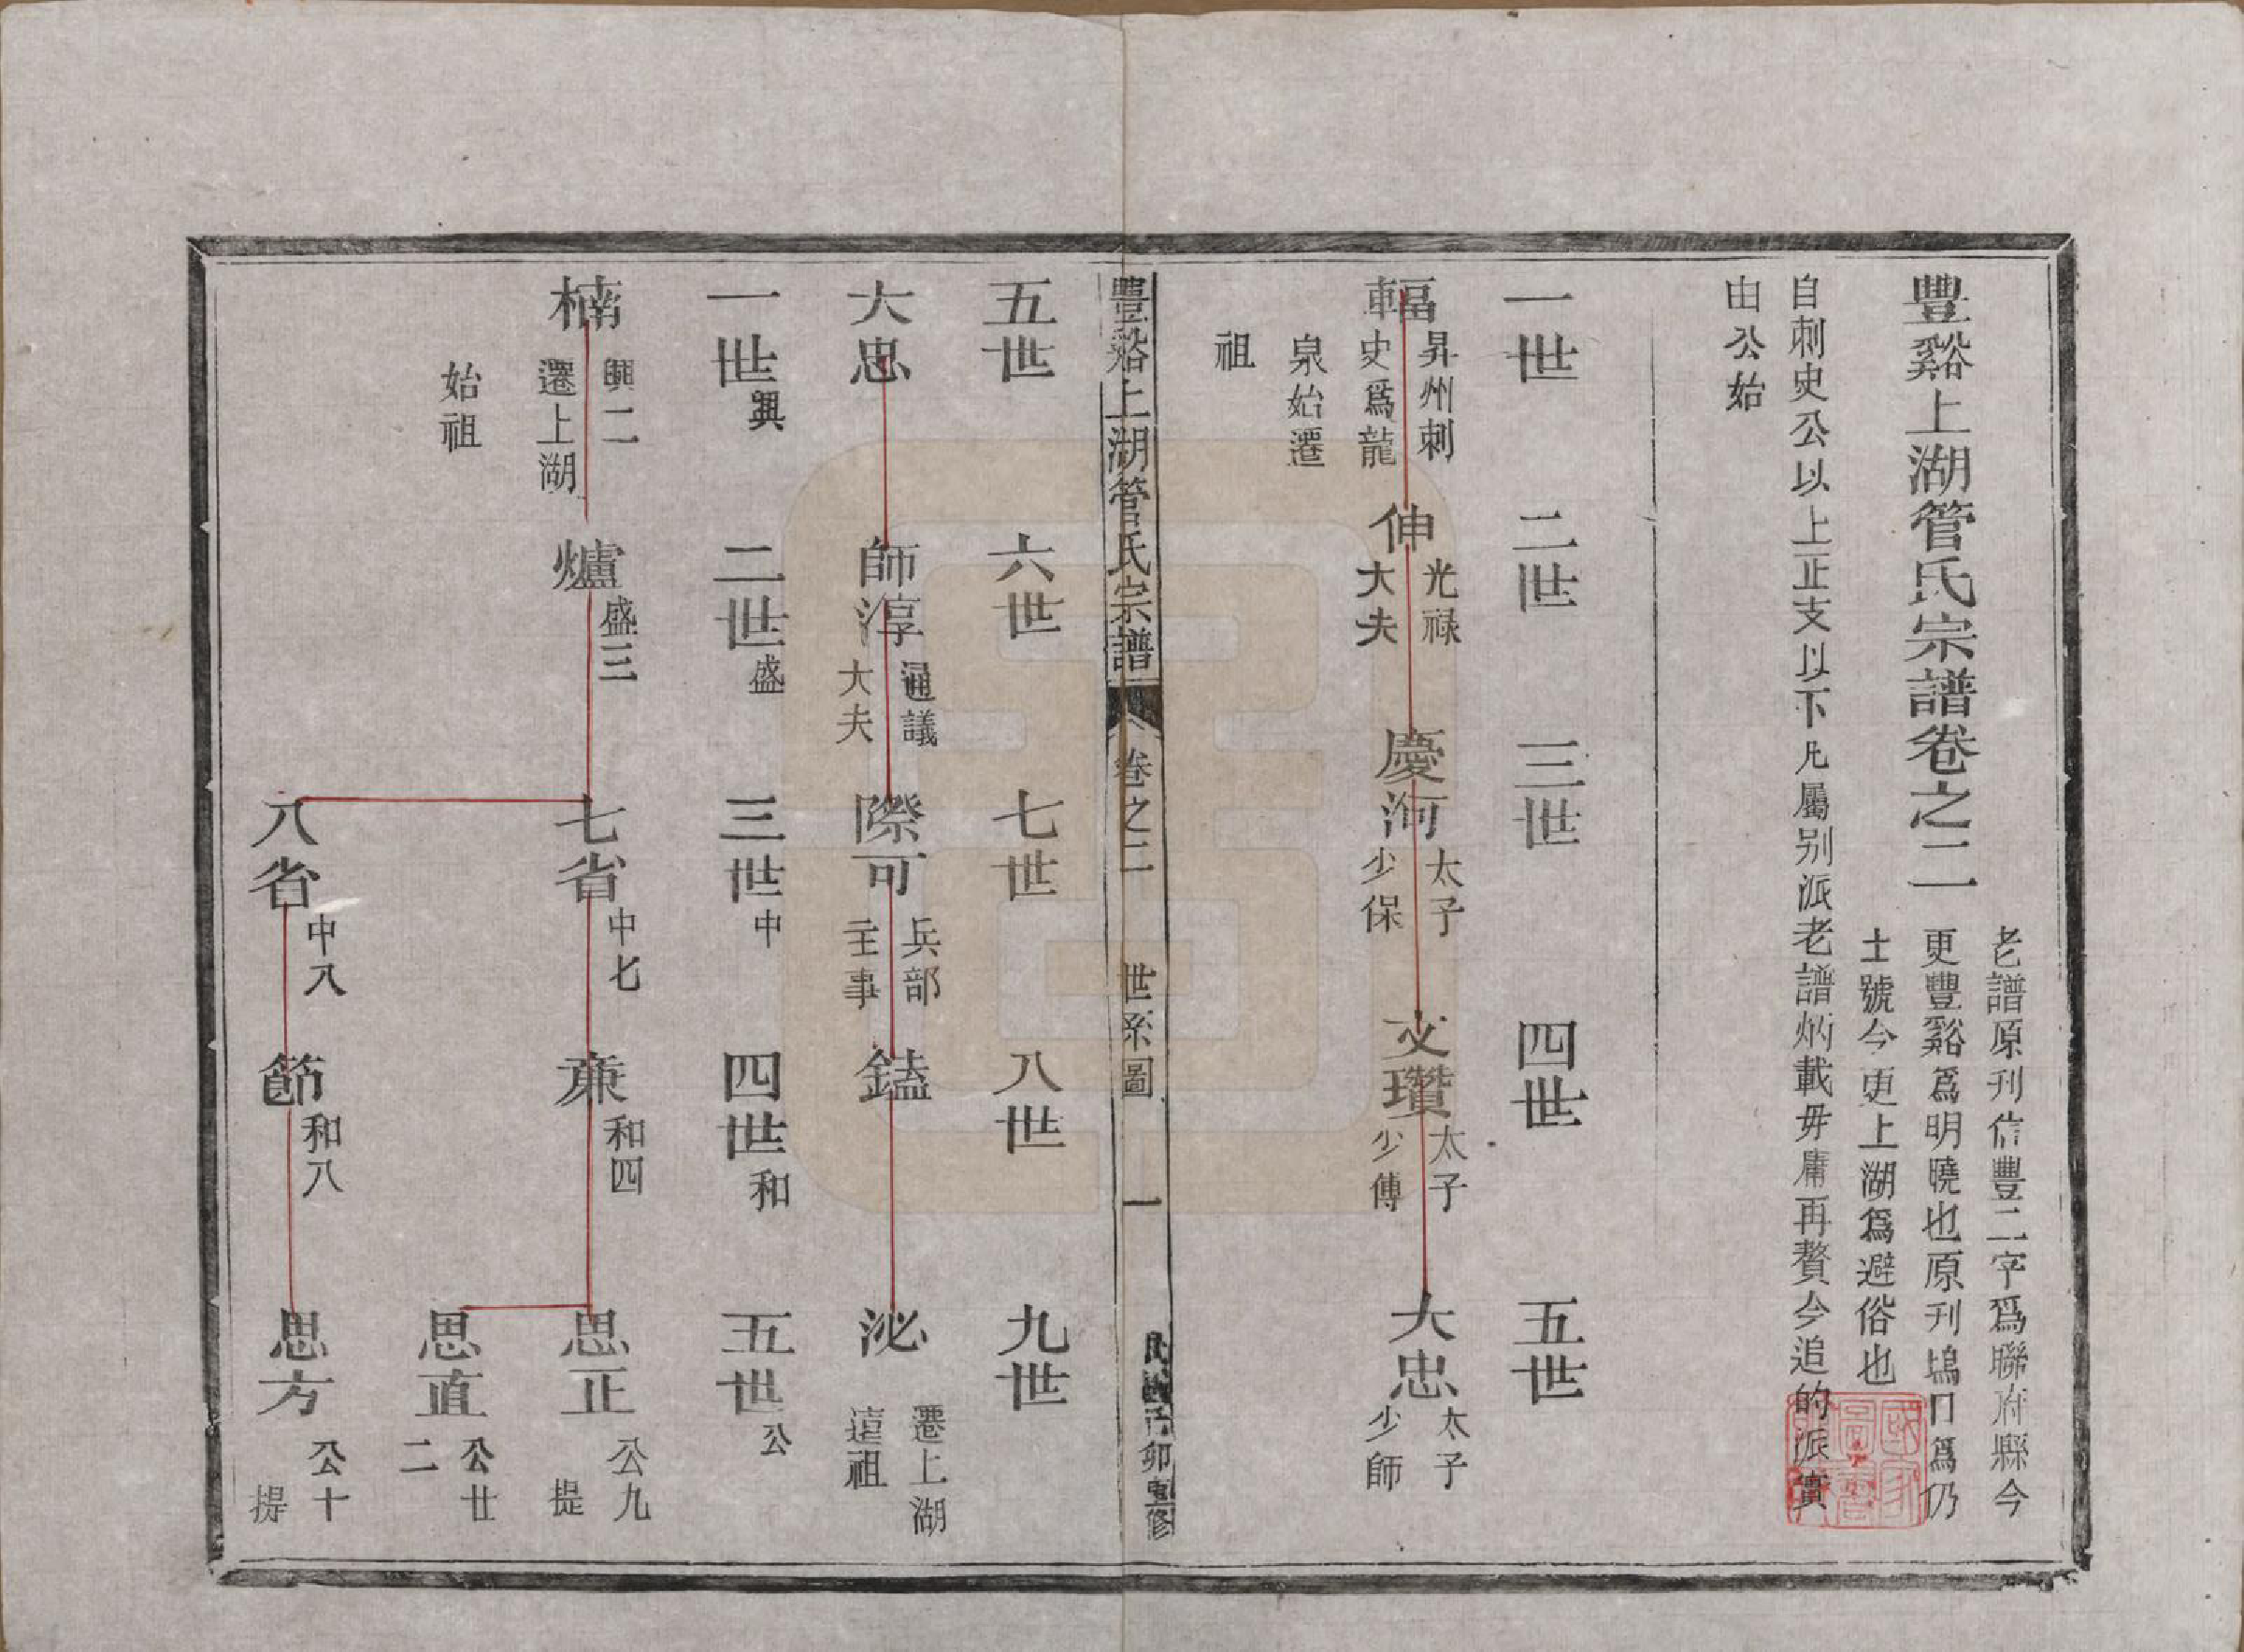 豐谿上湖管氏宗譜卷之二
老譜原刊信豐二字爲聯府縣今
更豐谿爲明曉也原刊塢口爲仍
土號今更上湖爲避俗也
自刺史公以上正支以下凡屬别派老譜炳載毋庸再贅今追的派實
由公始
一世 二世 三世 四世 五世
輻 昇州刺
史爲龍
泉始遷
祖
伸 光禄
大夫
慶河 太子
少保
文瓚 太子
少傅
大忠 太子
少師
豐谿上湖管氏宗譜 卷之二 世系圖 一 民國己卯重修
五世 六世 七世 八世 九世
大忠
師淳 通議
大夫
際可 兵部
主事
鎑
泌 遷上湖
遠祖
一世興 二世盛 三世中 四世和 五世公
楠 興二
遷上湖
始祖
爐 盛三
七省 中七
亷 和四
思正 公九
提
思直 公廿
二
八省 中八
節 和八
思方 公十
提